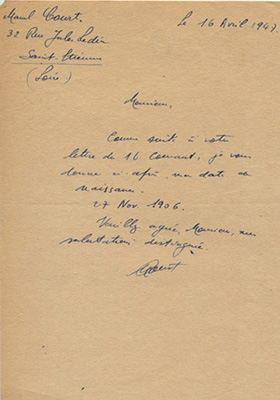 Marcel Court.
Le 16 Avril 1947.
32 Rue Jules Ledin
Saint-Etienne
(Loire)
Monsieur,
Comme suite à votre
lettre de 16 courant, je vous
donne ci-après ma date de
naissance.
27 Nov. 1906.
Veuillez agréer, Monsieur, mes
salutations distinguées.
Court